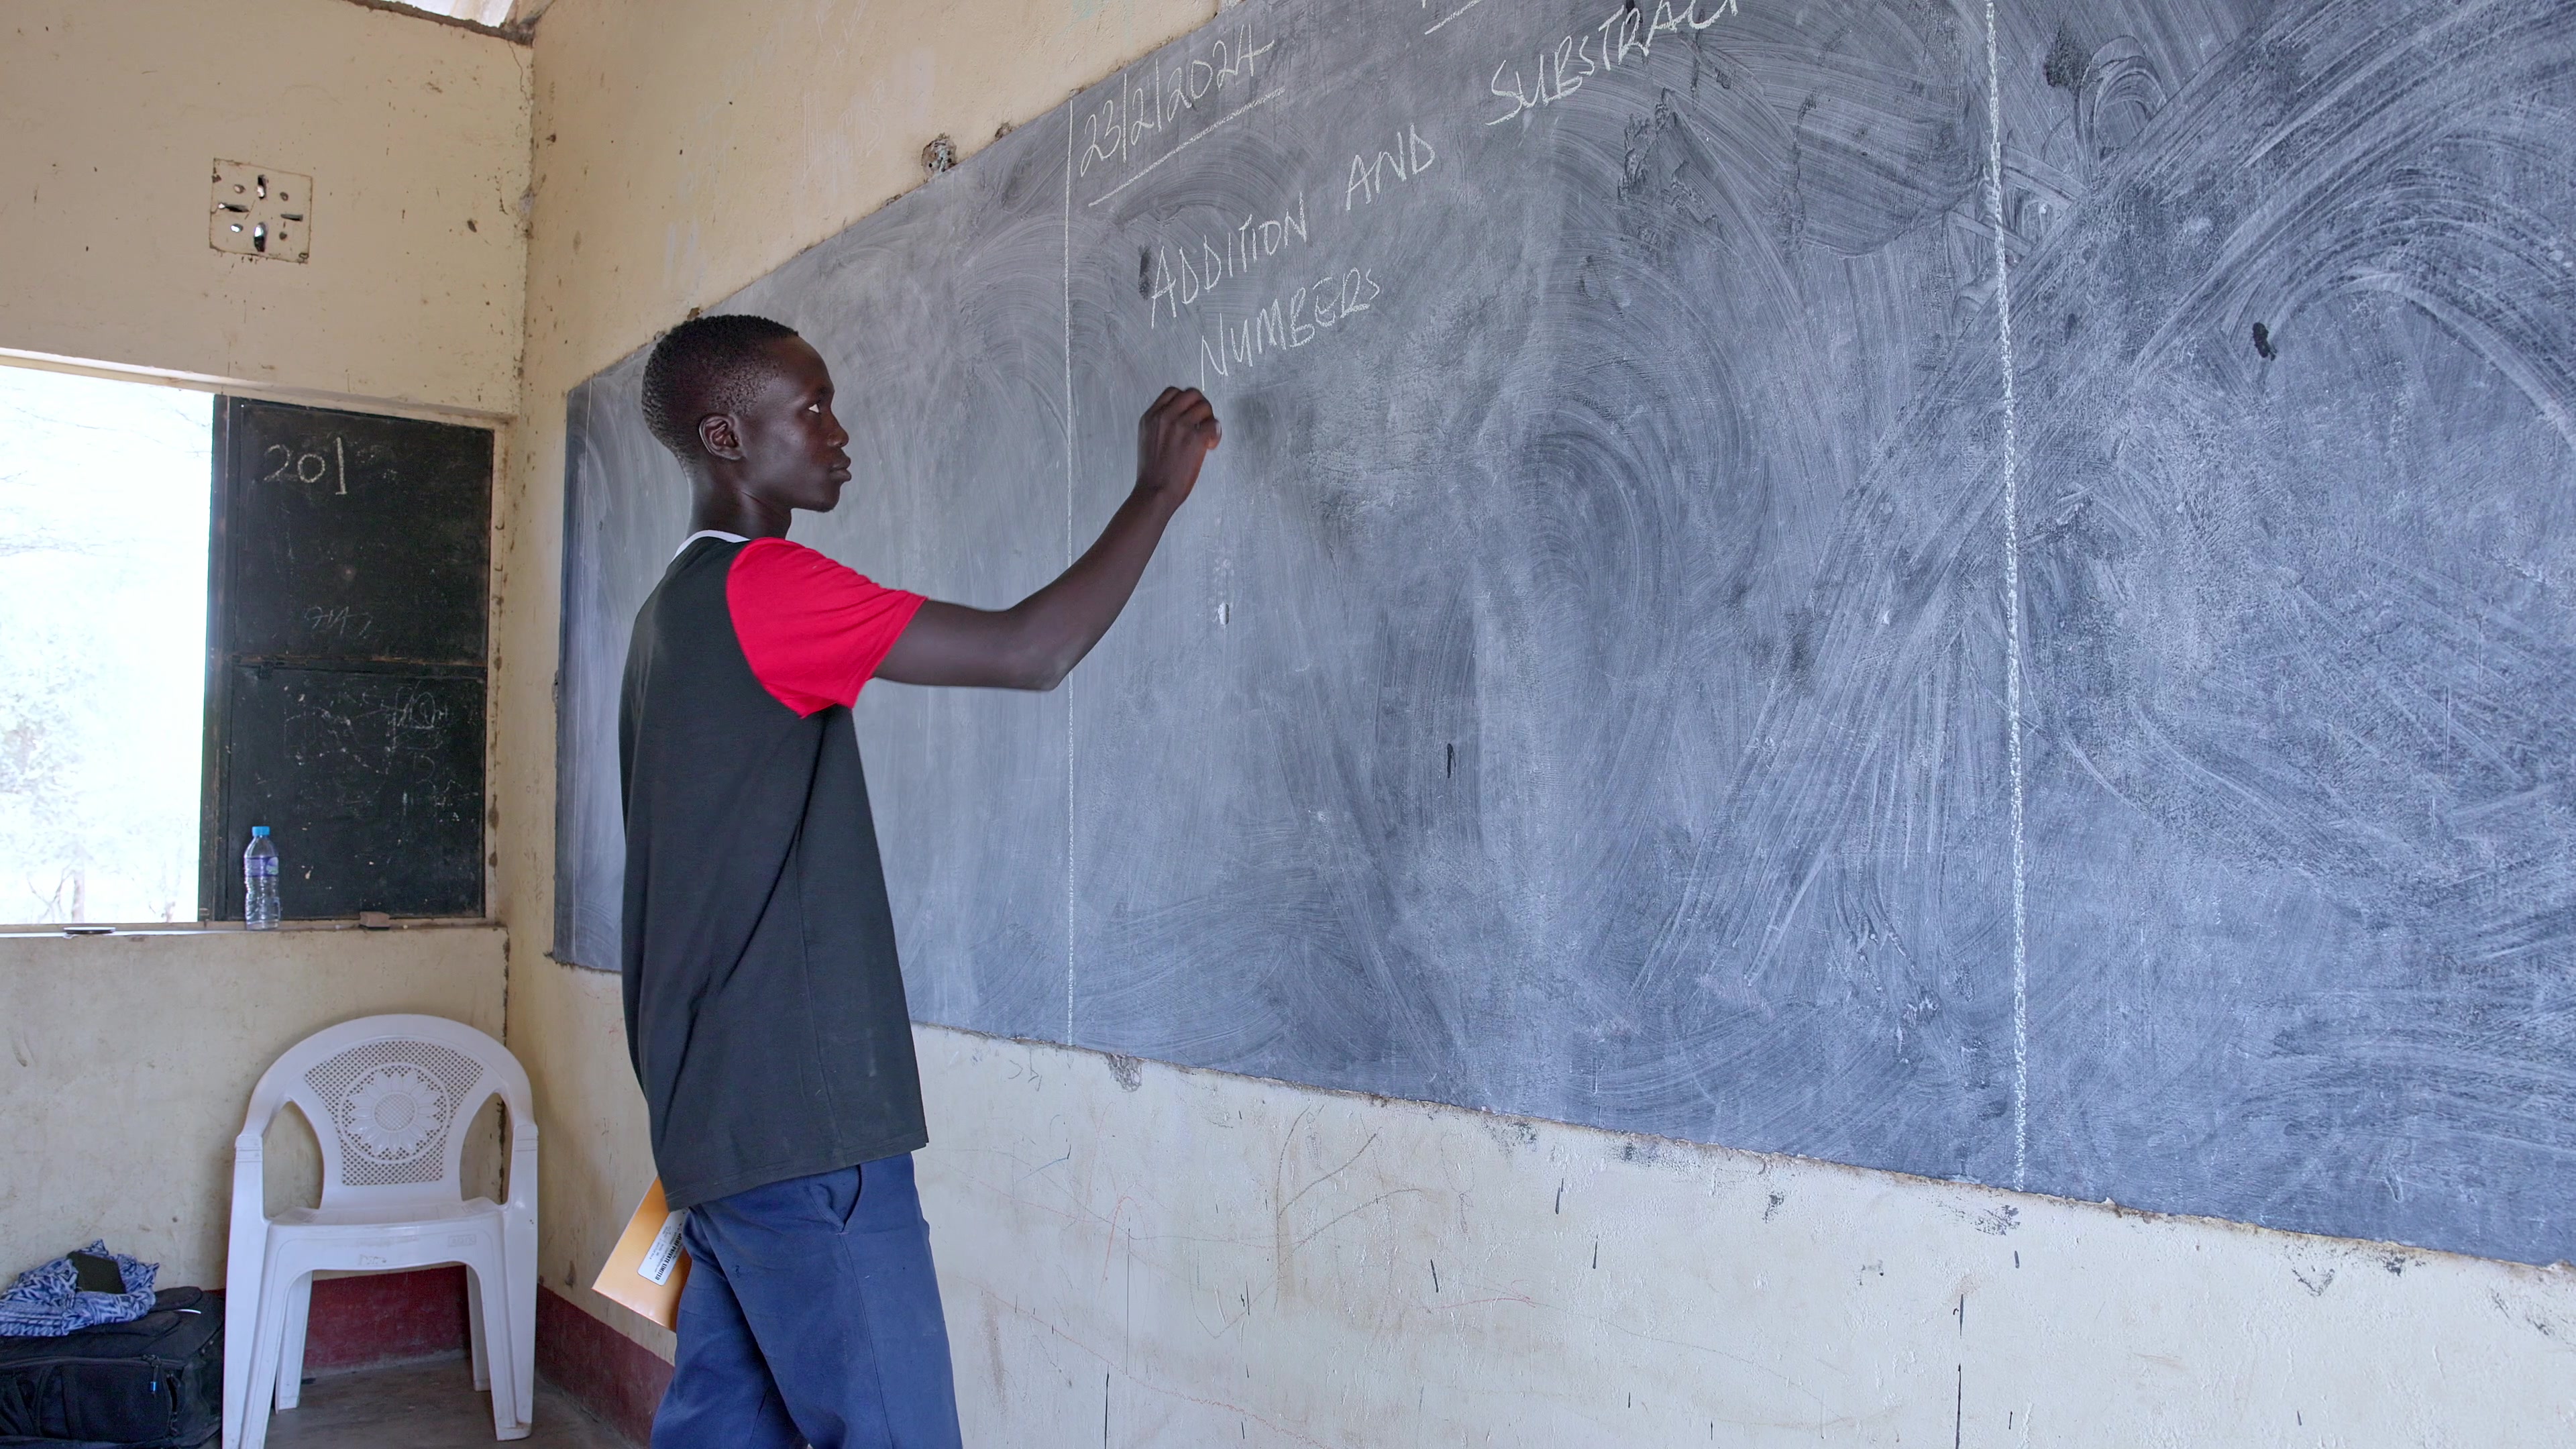 23/2/2024
ADDITION AND SUBSTRACT
NUMBERS
201